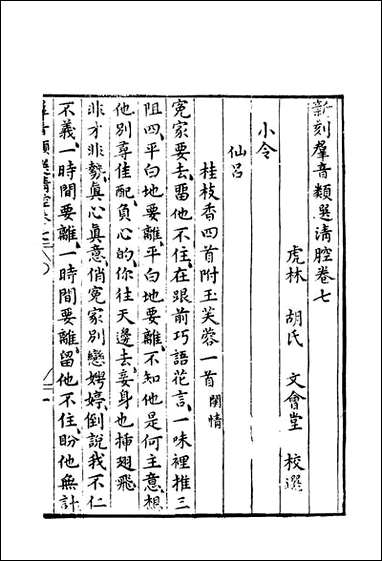 新刻羣音類選清腔卷七
虎林　胡氏　文會堂　校選
小令
仙呂
桂枝香四首附玉芙蓉一首 閨情
寃家要去留他不住在跟前巧語花言一味裡推三
阻四平白地要離平白地要離不知他是何主意想
他別尋佳配負心的你往天邊去妾身也插翅飛
非才非勢真心真意俏寃家別戀娉婷倒說我不仁
不義一時間要離一時間要離留他不住盼他無計
羣音類選清腔卷七